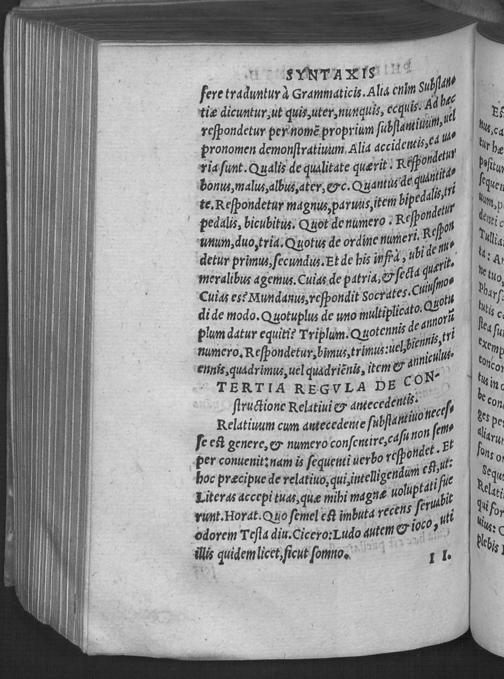 SYNTAXIS
fere traduntur à Grammaticis. Alia enim Substan-
tiæ dicuntur, ut quis, uter, nunquis, ecquis. Ad hæc
respondetur per nomē proprium substantiuum, uel
pronomen demonstratiuum. Alia accidentis, ea ua-
ria sunt. Qualis de qualitate quærit. Respondetur
bonus, malus, albus, ater, &c. Quantus de quantita-
te. Respondetur magnus, paruus, item bipedalis, tri
pedalis, bicubitus. Quot de numero. Respondetur
unum, duo, tria. Quotus de ordine numeri. Respon
detur primus, secundus. Et de his infrà, ubi de nu-
meralibus agemus. Cuias de patria, & secta quærit.
Cuias est? Mundanus, respondit Socrates. Cuiusmo-
di de modo. Quotuplus de uno multiplicato. Quotu
plum datur equiti? Triplum. Quotennis de annorū
numero. Respondetur, bimus, trimus: uel, biennis, tri
ennis, quadrimus, uel quadriēnis, item & anniculus.
TERTIA REGVLA DE CON-
structione Relatiui & antecedentis.
Relatiuum cum antecedente substantiuo necef-
se est genere, & numero consentire, casu non sem-
per conuenit: nam is sequenti uerbo respondet. Et
hoc præcipue de relatiuo, qui, intelligendum est, ut:
Literas accepi tuas, quæ mihi magnæ uoluptati fue
runt. Horat. Quo semel est imbuta recens seruabit
odorem Testa diu. Cicero: Ludo autem & ioco, uti
illis quidem licet, sicut somno.
II.